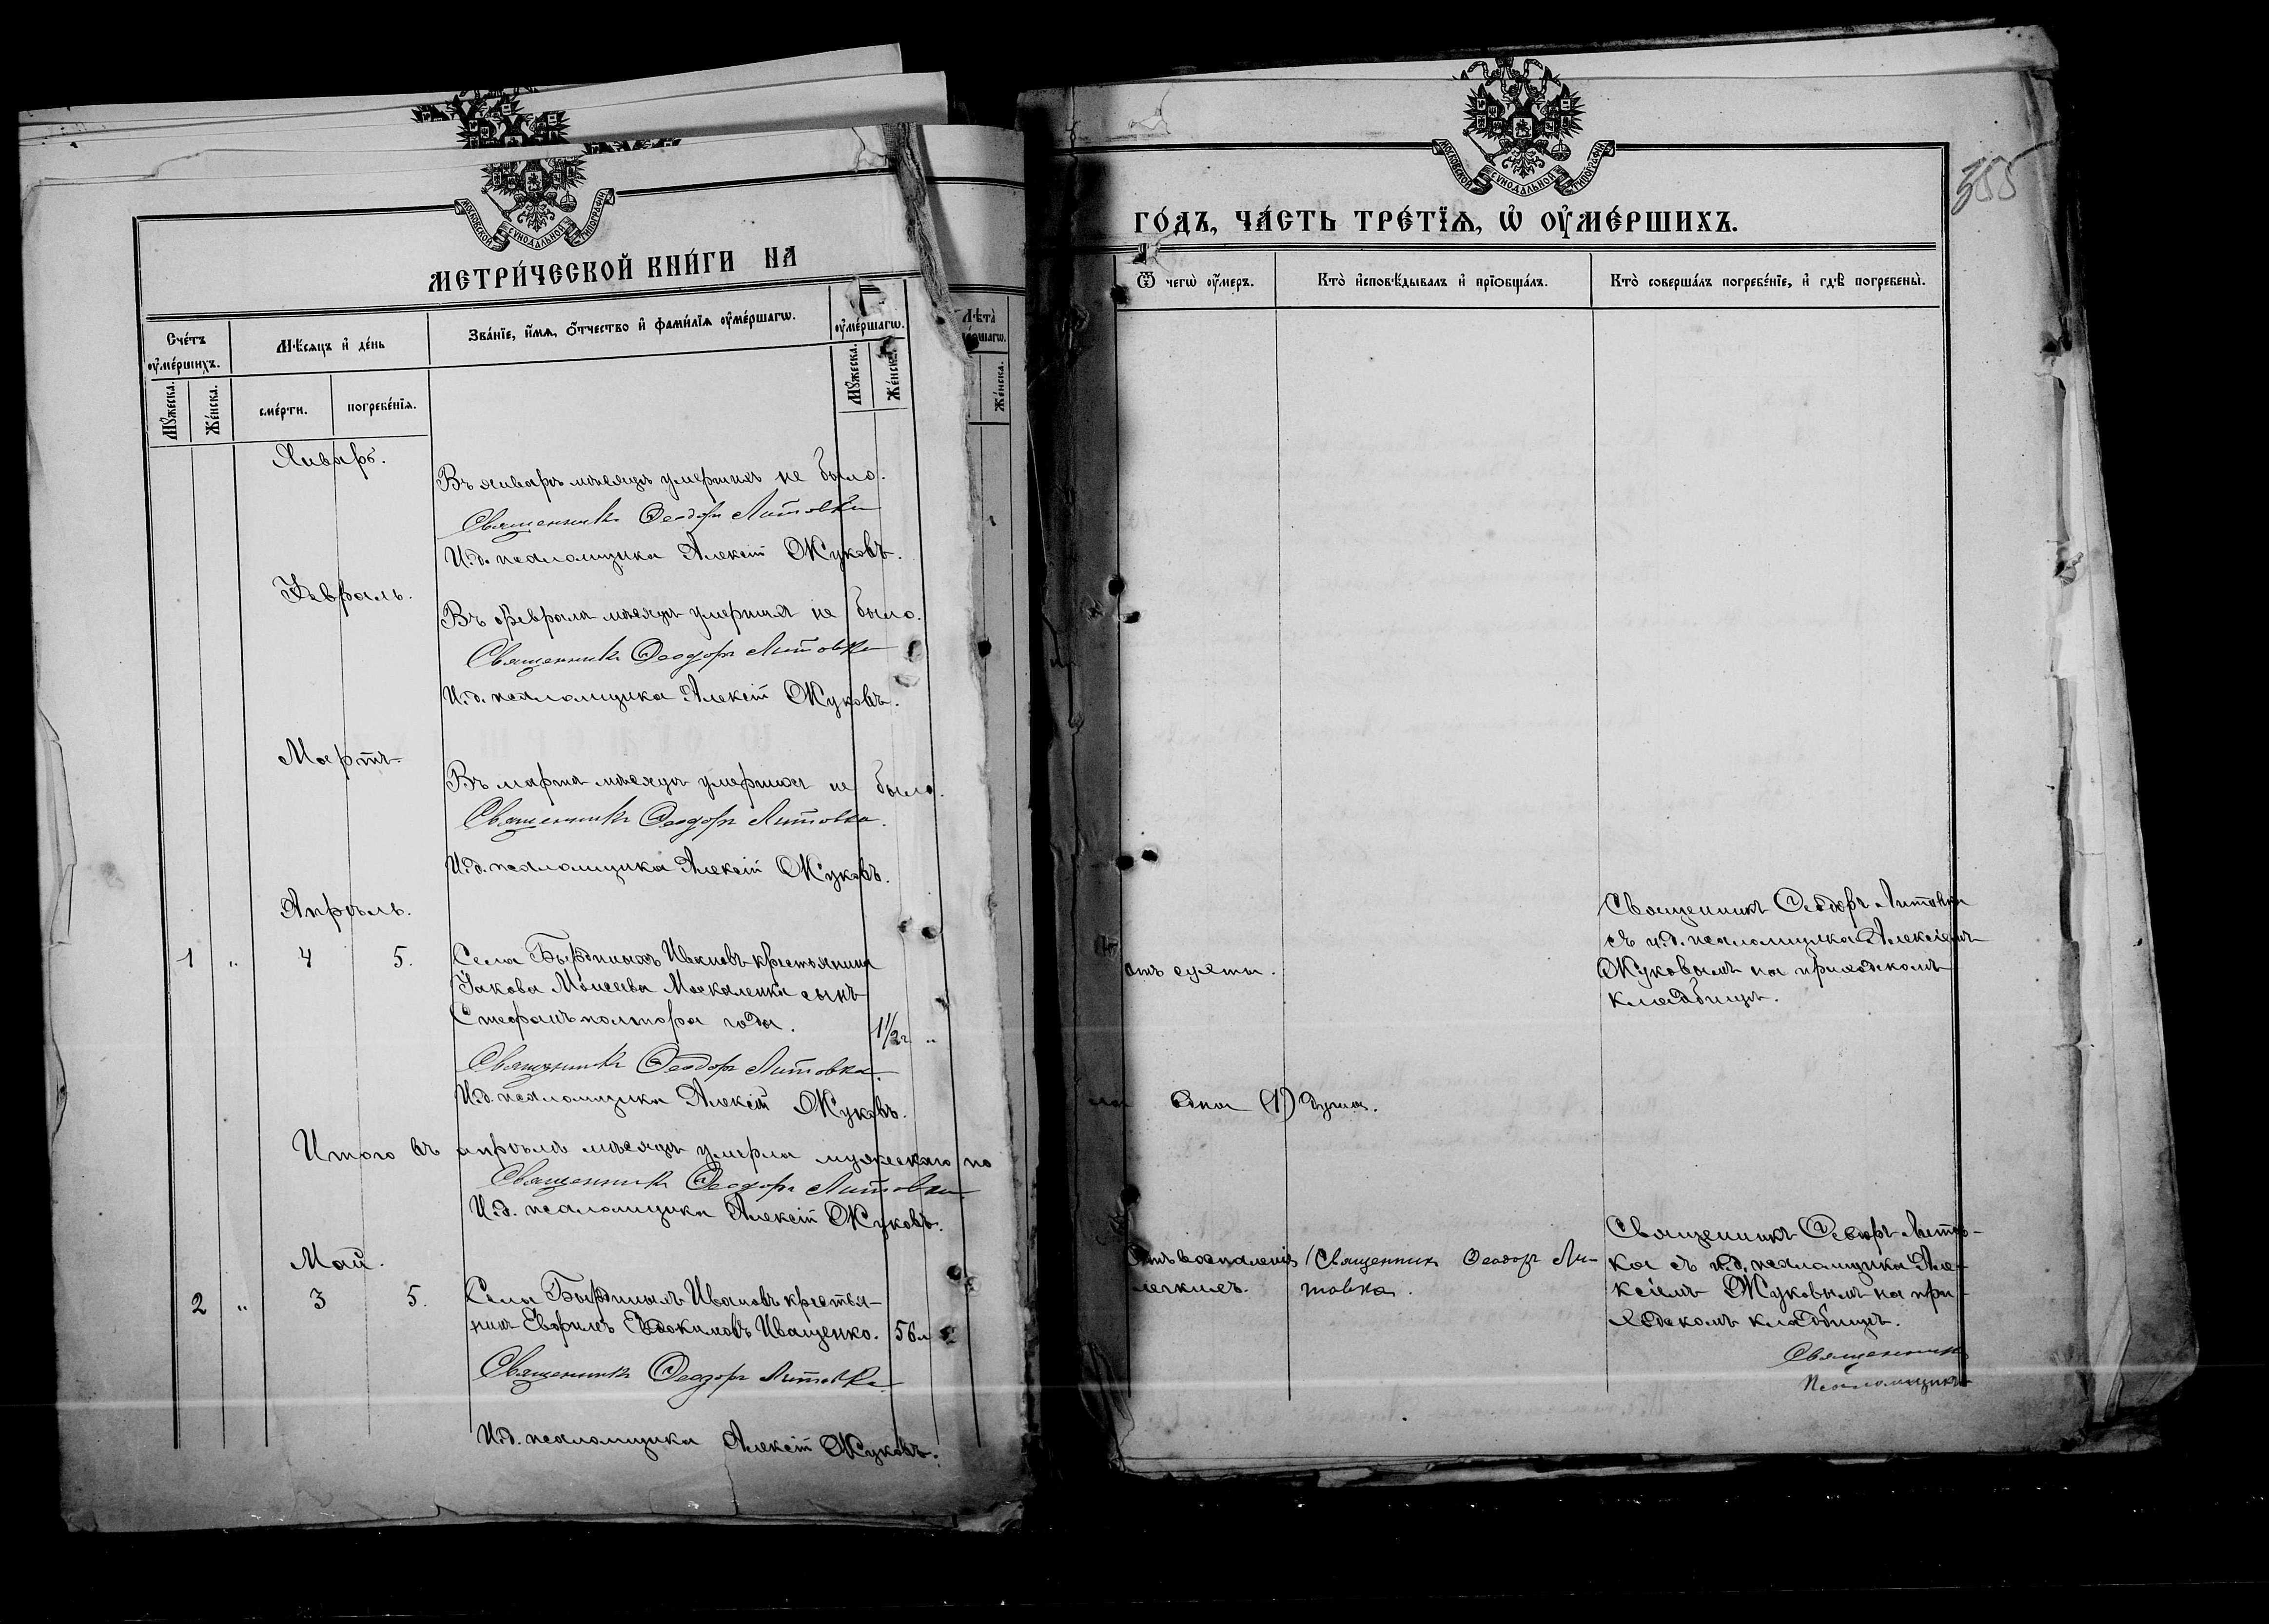 МОСКОВСКОЙ СѴНОДАЛЬНОЙ ТИПОГРАФІИ
МЕТРИ́ЧЕСКОЙ КНИ́ГИ НА
Сче́тъ ᲂу҆ме́ршихъ.
Мѣ́сяцъ и҆ де́нь
Зва́нїе, и҆́мѧ, ѻ҆́тчество и҆ фами́лїѧ ᲂу҆ме́ршагѡ.
ᲂу҆ме́ршагѡ.
Мꙋ́жеска.
Же́нска.
сме́рти.
погребе́нїѧ.
Мꙋ́жеска.
Же́нска.
Лѣ́та
Же́нска.
Январь.
Въ январѣ мѣсяцѣ умершихъ не было.
Священникъ Ѳеодоръ Литовка
И. д. псаломщика Алексій Жуковъ.
Февраль.
Въ февралѣ мѣсяцѣ умершихъ не было.
Священникъ Ѳеодоръ Литовка
И. д. псаломщика Алексій Жуковъ.
Мартъ
Въ мартѣ мѣсяцѣ умершихъ не было.
Священникъ Ѳеодоръ Литовка.
И. д. псаломщика Алексій Жуковъ.
Апрѣль.
1 " 4 5. Села Ивановъ крестьянина
Іакова Моисеева Москаленка сынъ
Стефанъ полтора года. 1½ г. "
Священникъ Ѳеодоръ Литовка.
И. д. псаломщика Алексій Жуковъ.
Итого въ апрѣлѣ мѣсяцѣ умерло мужескаго по
Священникъ Ѳеодоръ Литовка
И. д. псаломщика Алексій Жуковъ.
Май.
2 " 3 5. Села Ивановъ крестья-
нинъ Евфимъ Евдокимовъ Иващенко. 56 л
Священникъ Ѳеодоръ Литовка
И. д. псаломщика Алексій Жуковъ.
МОСКОВСКОЙ СѴНОДАЛЬНОЙ ТИПОГРАФІИ
355
ГО́ДЪ, ЧА́СТЬ ТРЕ́ТЇѦ, Ѡ҆ ОУ҆МЕ́РШИХЪ.
Ѿ чегѡ̀ ᲂу҆́меръ.
Кто̀ и҆сповѣ́дывалъ и҆ прїѡбща́лъ.
Кто̀ соверша́лъ погребе́нїе, и҆ гдѣ̀ погребены̀.
Священникъ Ѳеодоръ Литовка
съ и. д. псаломщика Алексіемъ
отъ сухты.
Жуковымъ на приходскомъ
кладбищѣ.
ла одна (1) душа.
Отъ воспаленія
легкихъ.
Священникъ Ѳеодоръ Ли-
товка.
Священникъ Ѳеодоръ Литов-
ка съ и. д. псаломщика Але-
ксіемъ Жуковымъ на при-
ходскомъ кладбищѣ.
Священникъ
Псаломщикъ